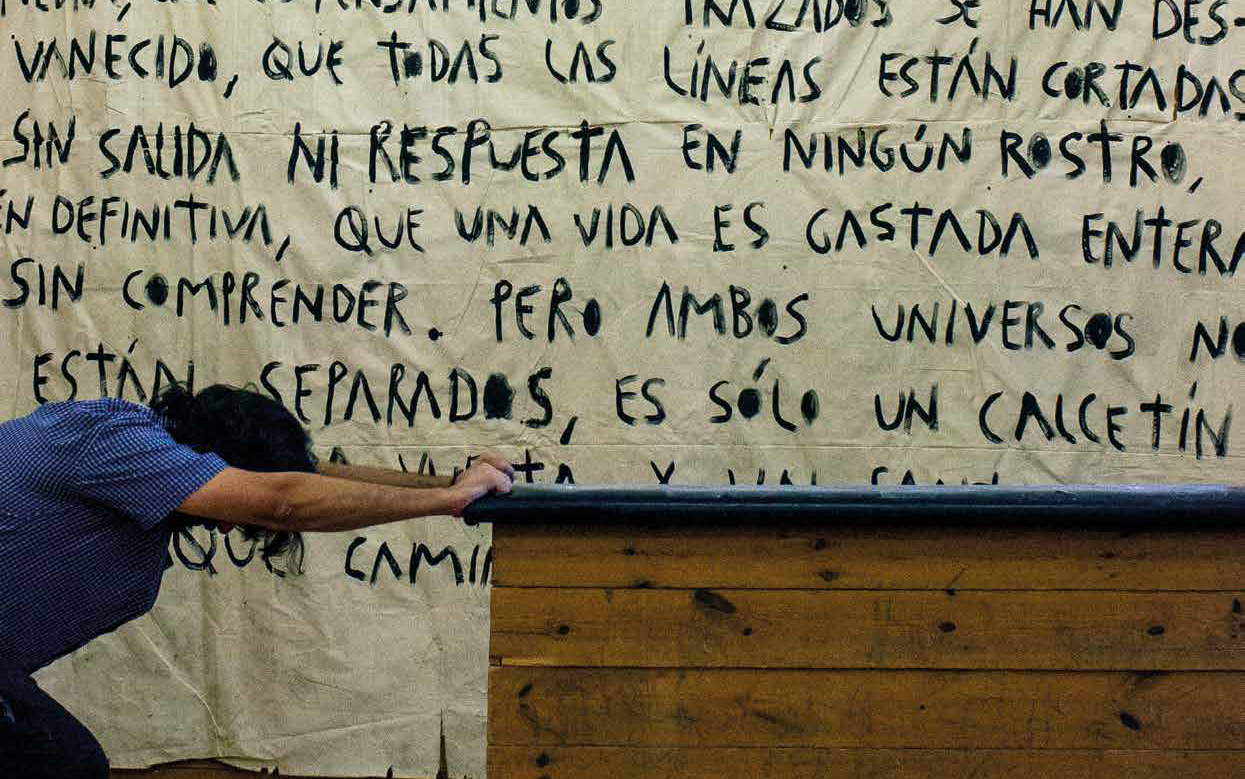 QUE LOS PENSAMIENTOS TRAZADOS SE HAN DES-
VANECIDO, QUE TODAS LAS LÍNEAS ESTÁN CORTADAS
SIN SALIDA NI RESPUESTA EN NINGÚN ROSTRO,
EN DEFINITIVA, QUE UNA VIDA ES GASTADA ENTERA
SIN COMPRENDER. PERO AMBOS UNIVERSOS NO
ESTÁN SEPARADOS, ES SÓLO UN CALCETÍN
Y UN
QUE CAMI